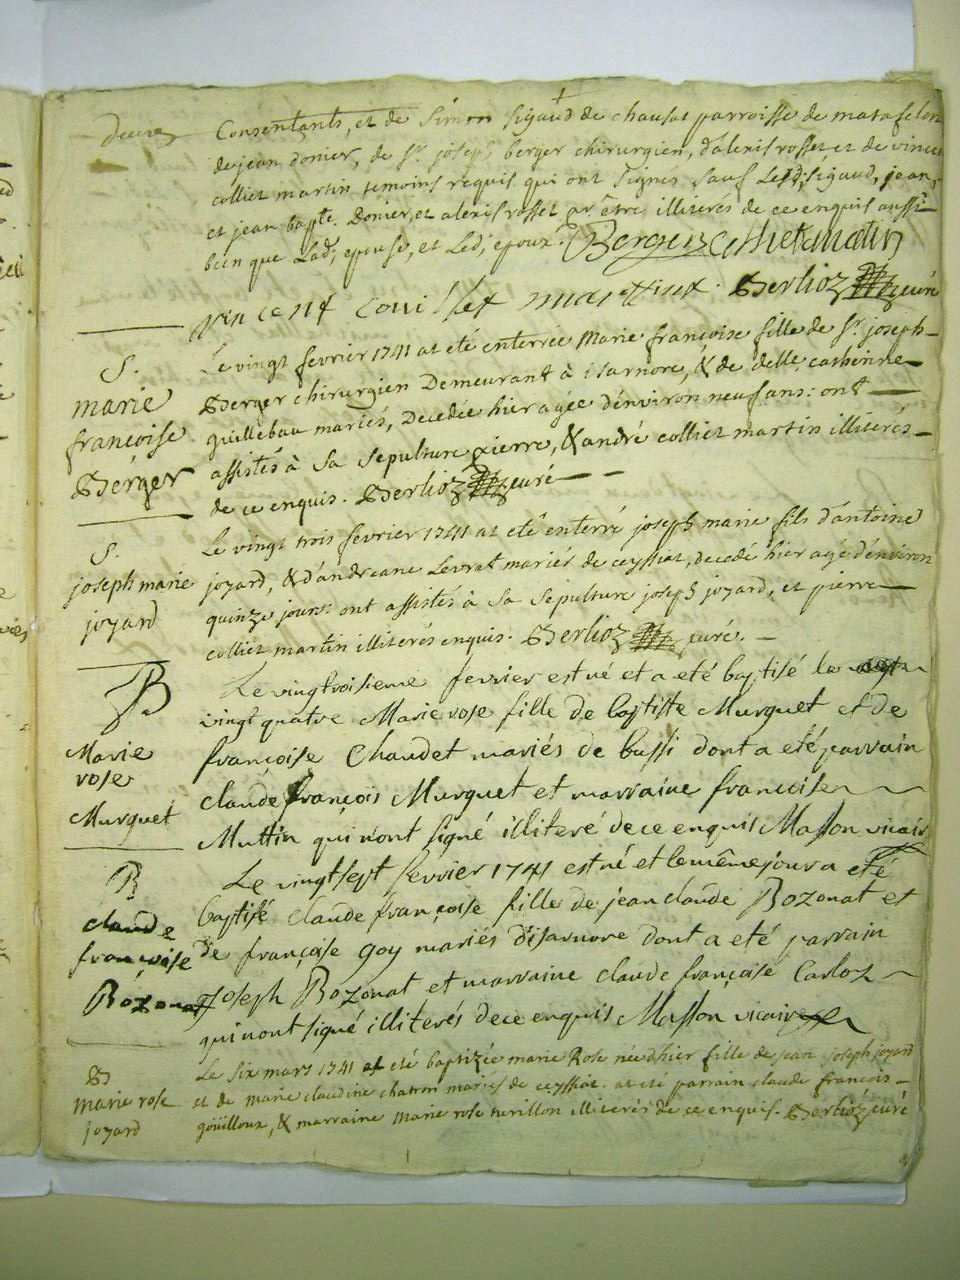 Consentants, et de Simon Sigaud de chausat parroisse de matafelon
de jean donier, de Sr. joseph berger chirurgien, d'alexis rosset et de vincent
colliet martin temoins requis qui ont signes sauf Led, sigaud, jean,
et jean bapte. Donier, et alexis rosset pr être illiterés de ce enquis aussi
bien que Lad, epouse, et Led, epoux. Berger
vincent Berlioz curé
S.
marie
françoise
Berger
Le vingt fevrier 1741 at eté enterrée Marie françoise fille de Sr. joseph
Berger chirurgien Demeurant à isarnore, & de delle, catherine
guillebau mariés, Decedée hier agée d'environ neuf ans: ont
assistés à sa sepulture pierre, & andré colliet martin illiterés
de ce enquis. Berlioz curé
S.
joseph marie
joyard
Le vingt trois fevrier 1741 at eté enterré joseph marie fils d'antoine
joyard, & d'andreane Levrat mariés de ceyssiat, decedé hier agé d'environ
quinze jours: ont assistés à sa sepulture joseph joyard, et pierre
colliet martin illiterés enquis. Berlioz curé.
B
Marie
rose
Murguet
Le vingtroisieme fevrier est né et a eté baptisé le
vingt quatre Marie rose fille de baptiste Murguet et de
françoise Chaudet mariés de bussi dont a eté parrain
claude françois Murguet et marraine françoise
Muttin qui n'ont signé illiteré de ce enquis Masson vicair
B
claude
françoise
Bozonat
Le vingtsept fevrier 1741 est né et le même jour a eté
baptisé claude françoise fille de jean claude Bozonat et
de françoise goy mariés d'isarnore dont a eté parrain
joseph Bozonat et marraine claude françoise Carloz
qui n'ont signé illiterés de ce enquis Masson vicair
B
marie rose
joyard
Le six mars 1741 at eté baptizée marie Rose née d'hier fille de jean joseph joyard
et de marie claudine chatron mariés de ceyssiat. at eté parrain claude françois
gouilloux, & marraine marie rose turillon illiterés de ce enquis. Berlioz curé